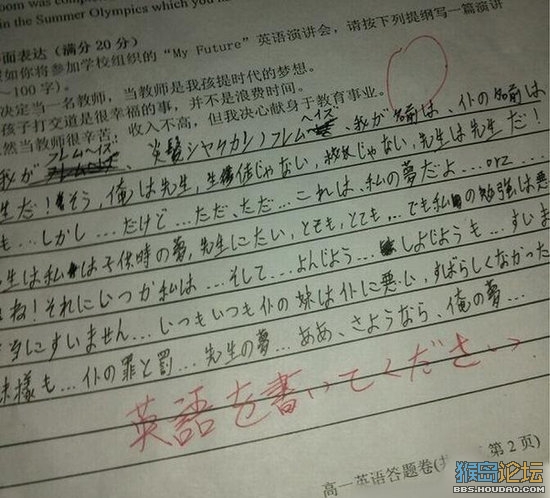 oom was comp
in the Summer Olympics which you h
面表达(满分20分)
如你将参加学校组织的"My Future"英语演讲会,请按下列提纲写一篇演讲
~100字)。
决定当一名教师,当教师是我孩提时代的梦想。
孩子打交道是很幸福的事,并不是浪费时间。
然当教师很辛苦,收入不高,但我决心献身于教育事业。
我が フレイムヘイズ、炎髪シャケカン ノ フレムヘイズ、我が名前は、仆の名前は
生だ!そう、俺は先生,生徒じゃない,じゃない,先生は先生だ!
も...しかし...だけど...ただ、ただ...これは、私の夢だよ...orz...
生は私は子供時の夢,先生にたい,とても,とても...でも私の勉強は悪
ね!それにいつか私は...そして...よんじよう...しよじようも...すいま
当にすいません...いつもいつも仆の妹は仆に悪い,すばらしくなかった
妹様も...仆の罪と罰...先生の夢...ああ、さようなら、俺の夢...
英語を書いてください
高一英语答题卷(共 第2页)
猴岛论坛
BBS.HOUDAO.COM